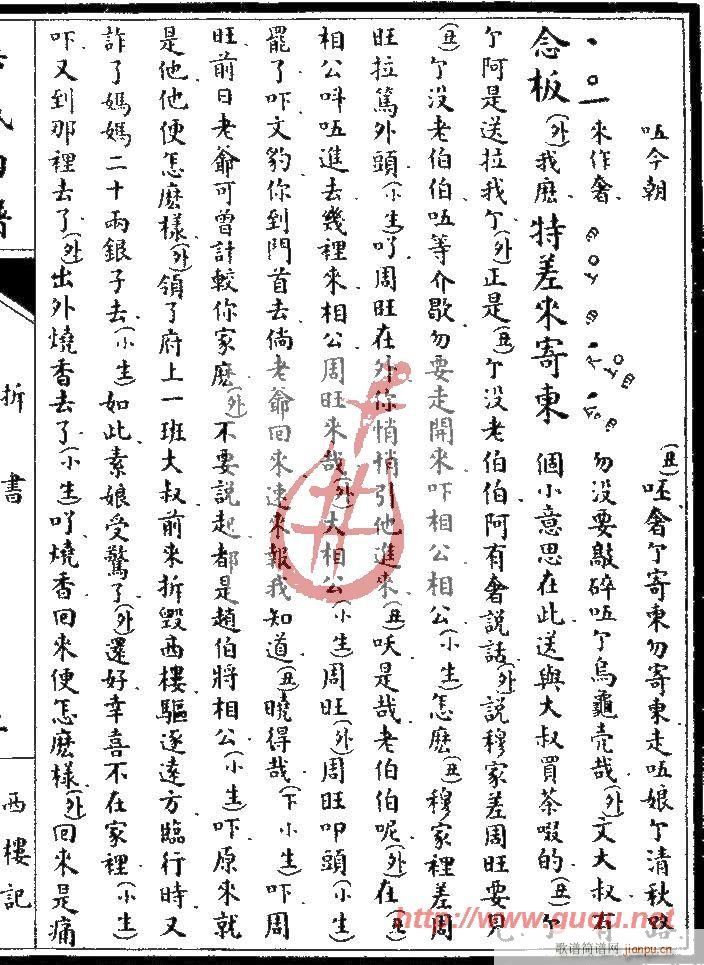 呸奢个寄柬勿寄柬走呸娘个清秋
呸今朝
來作奢 勿没要敲碎呸个烏龜壳哉(外)文大叔有
念板(外)我麽特差來寄柬 個小意思在此送與大叔買茶啜的(丑)
个阿是送拉我个(外)正是(丑)个没老伯伯阿有奢説話(外)説穆家差周旺要見
(丑)个没老伯伯呸等介歇勿要走開來吓相公相公(小生)怎麽(丑)穆家裡差周
旺拉篤外頭(小生)吖周旺在外你悄悄引他進來(丑)吷是哉老伯伯呢(外)在(丑)
相公呌呸進去幾裡來相公周旺來哉(外)大相公(小生)周旺(外)周旺叩頭(小生)
罷了吓文豹你到門首去倘老爺回來速來報我知道(丑)曉得哉(下小生)吓周
旺前日老爺可曾計較你家麽(外)不要説起都是趙伯將相公(小生)吓原來就
是他他便怎麽樣(外)領了府上一班大叔前來折毀西樓驅逐遠方臨行時又
詐了媽媽二十兩銀子去(小生)如此素娘受驚了(外)還好幸喜不在家裡(小生)
吓又到那裡去了(外)出外燒香去了(小生)吖燒香回來便怎麽樣(外)回來是痛
折書
西樓記
http://www.guqu.net
歌谱简谱网
jianpu.cn